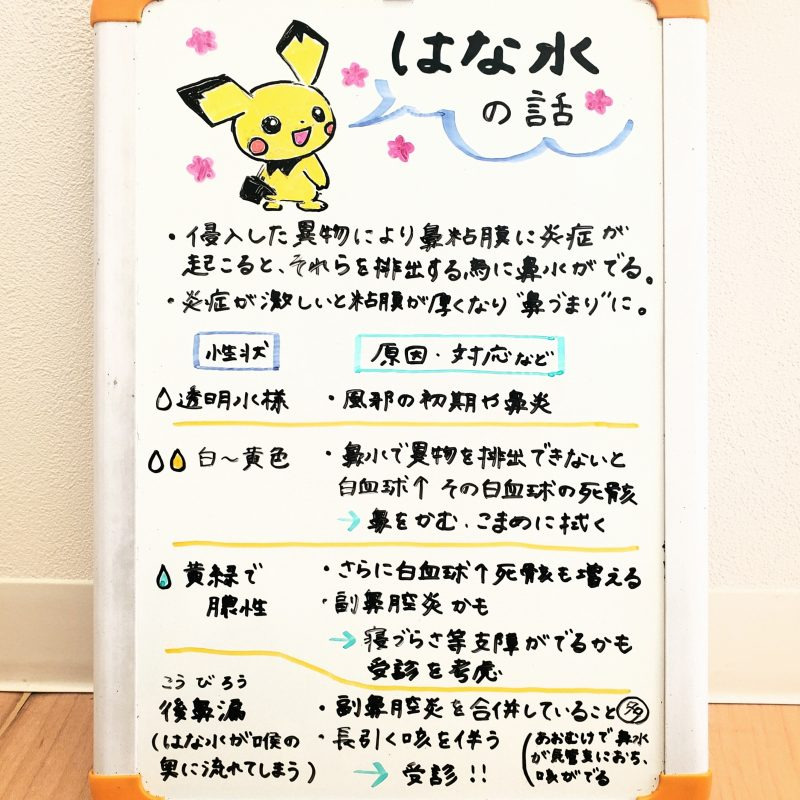 はな水
の話
・侵入した異物により鼻粘膜に炎症が
起こると、それらを排出する為に鼻水がでる。
・炎症が激しいと粘膜が厚くなり"鼻づまり"に。
性状
原因・対応など
透明水様
・風邪の初期や鼻炎
白〜黄色
・鼻水で異物を排出できないと
白血球↑ その白血球の死骸
→ 鼻をかむ、こまめに拭く
黄緑で
膿性
・さらに白血球↑死骸も増える
・副鼻腔炎かも
→ 寝づらさ等支障がでるかも
受診を考慮
こうびろう
後鼻漏
(はな水が喉の
奥に流れてしまう)
・副鼻腔炎を合併していること
・長引く咳を伴う
(あおむけで鼻水
が気管支におち、
咳がでる
→ 受診!!